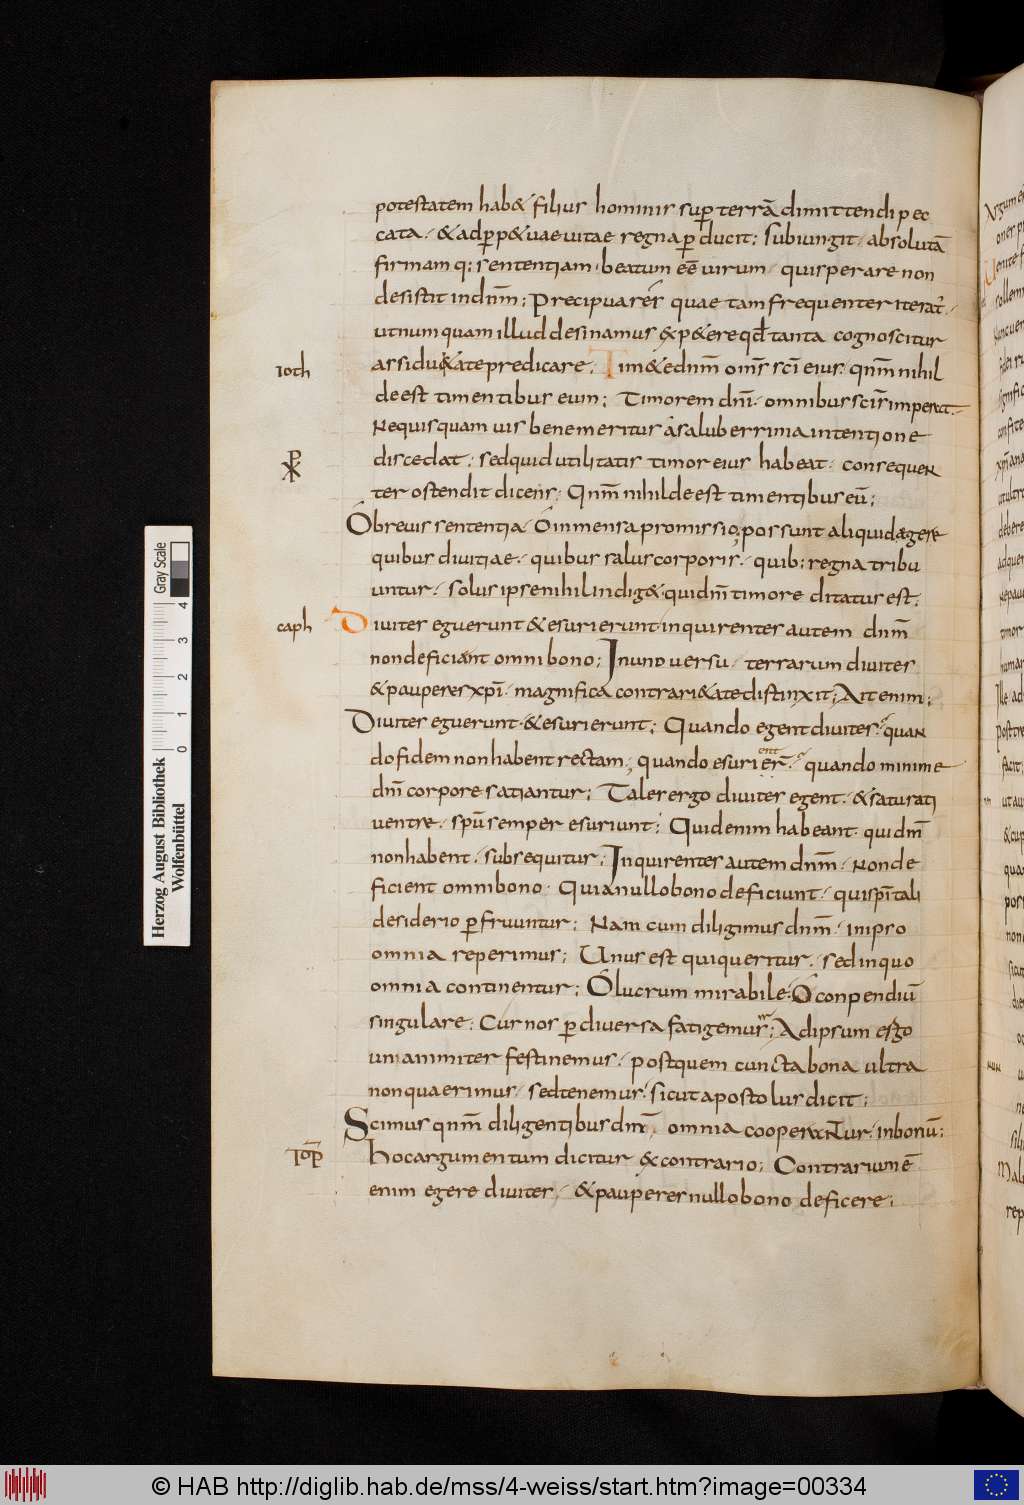 potestatem hab& filius hominis sup terrā dimittendi pec
cata · & ad ꝑp&uae uitae regna ꝑducit ; subiungit · absolutā
firmamq; sententiam · beatum eē uirum · qui sperare non
desistit in dn̄m ; Precipua res quae tam frequenter iterat̄ ·
ut numquam illud desinamus &p&ere qd̄ tanta cognoscitur
assidui&ate predicare ; Tim&e dn̄m om̄s sc̄i eius · qnm̄ nihil
ioth
deest timentibus eum ; Timorem dn̄i · omnibus sc̄is imperat ·
Nequisquam uis bene meritus a saluberrima intentione
discedat ; sed quid utilitatis timor eius habeat · consequen
ter ostendit dicens ; Qnm̄ nihil deest timentibus eū ;
O breuis sententia · O inmensa promissio, possunt aliquid egere
quibus diuitiae · quibus salus corporis · quib; regna tribu
untur · solus ipse nihil indig& · qui dn̄i timore ditatus est ;
caph
Diuites eguerunt & esurierunt inquirentes autem dn̄m
non deficiant omni bono ; In uno uersu · terrarum diuites
& pauperes xp̄i · magnifica contrari&ate distinxit ; Ait enim ;
Diuites eguerunt · & esurierunt ; Quando egent diuites · quan
do fidem non habent rectam ; quando esurier̄ · quando minime
ont
dn̄i corpore satiantur ; Tales ergo diuites egent · & saturati
uentre · spū semper esuriunt ; Quid enim habeant · qui dn̄m
non habent · subsequitur ; Inquirentes autem dn̄m · non de
ficient omni bono · Quia nullo bono deficiunt · qui sp̄itali
desiderio ꝑfruuntur ; Nam cum diligimus dn̄m · in ipso
omnia reperimus ; Unus est qui queritur · sed in quo
omnia continentur ; O lucrum mirabile · O conpendiū
singulare ; Cur nos ꝑ diuersa fatigemus ; Ad ipsum ergo
unanimiter festinemus · postquem cuncta bona ultra
non quaerimus · sed tenemus · sicut apostolus dicit ;
Scimus qnm̄ diligentibus dm̄ · omnia cooperantur · in bonū ;
Top̄
hoc argumentum dicitur & contrario ; Contrarium ē
enim egere diuites · & pauperes nullo bono deficere ;
Herzog August Bibliothek
Wolfenbüttel
0 1 2 3 4
Gray Scale
© HAB http://diglib.hab.de/mss/4-weiss/start.htm?image=00334